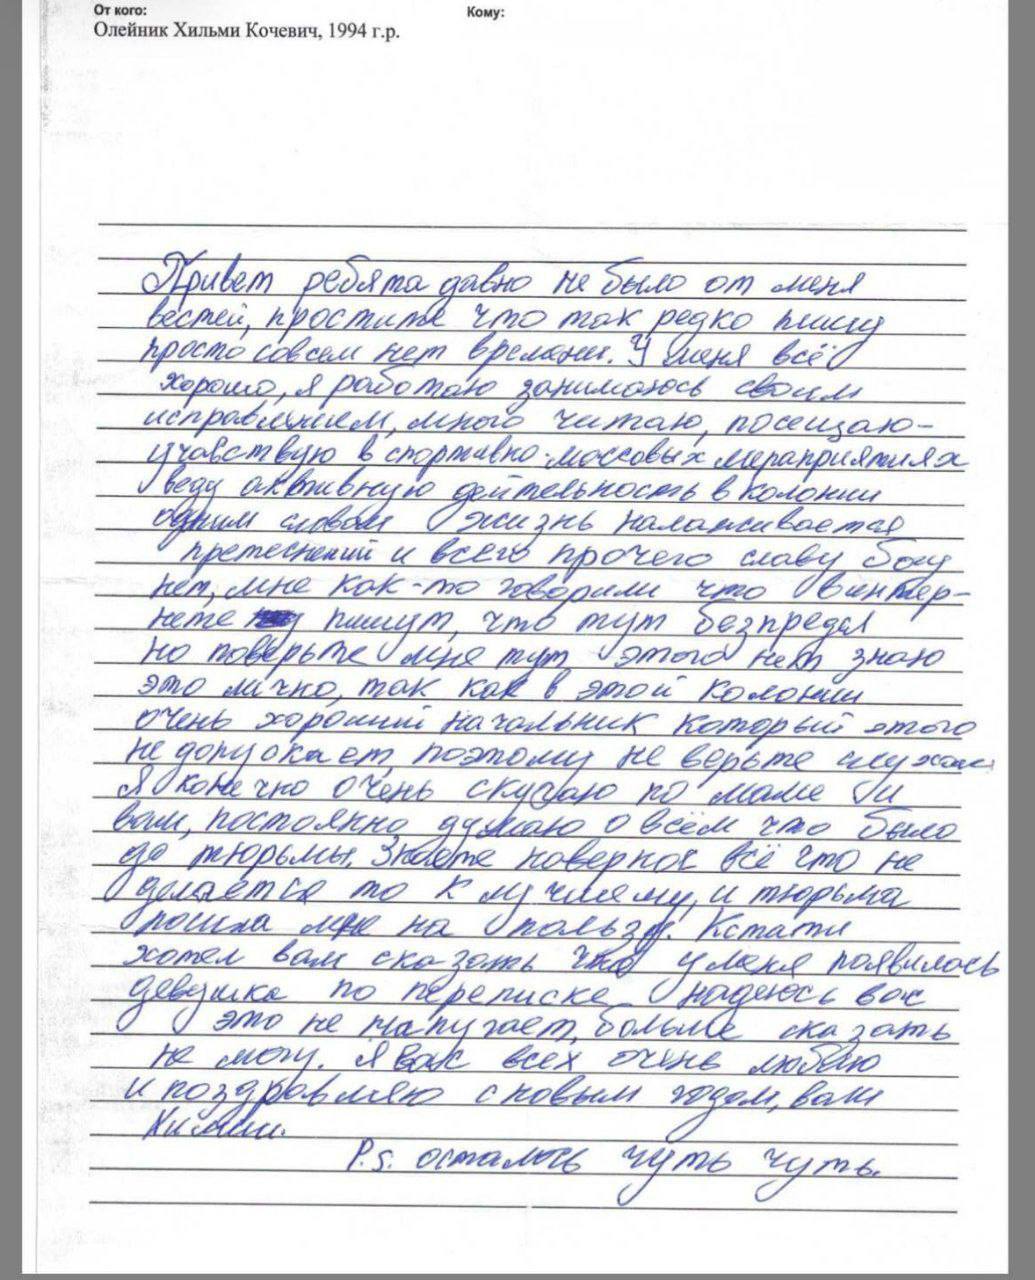 От кого:
Кому:
Олейник Хильми Кочевич, 1994 г.р.
Привет ребята давно не было от меня
вестей, простите что так редко пишу
просто совсем нет времени. У меня всё
хорошо, я работаю занимаюсь своим
исправлением, много читаю, посещаю-
учавствую в спортивно-массовых мераприятиях
веду активную дейтельность в колонии
одним словом жизнь налаживается
претеснений и всего прочего славу богу
нет, мне как-то говорили что винтер-
нете пишут, что тут безпредел
но поверьте мне тут этого нет знаю
это лично, так как в этой колонии
очень хороший начальник который этого
не допускает, поэтому не верьте слухам.
Я конечно очень скучаю по маме и
вам, постоянно думаю о всём что было
до тюрьмы. Знаете наверное всё что не
делается то к лучшему, и тюрьма
пошла мне на пользу. Кстати
хотел вам сказать что у меня появилось
девушка по переписке надеюсь вас
это не напугает, больше сказать
не могу. Я вас всех очень люблю
и поздравляю с новым годом, ваш
Хильми.
P.s. осталось чуть чуть.